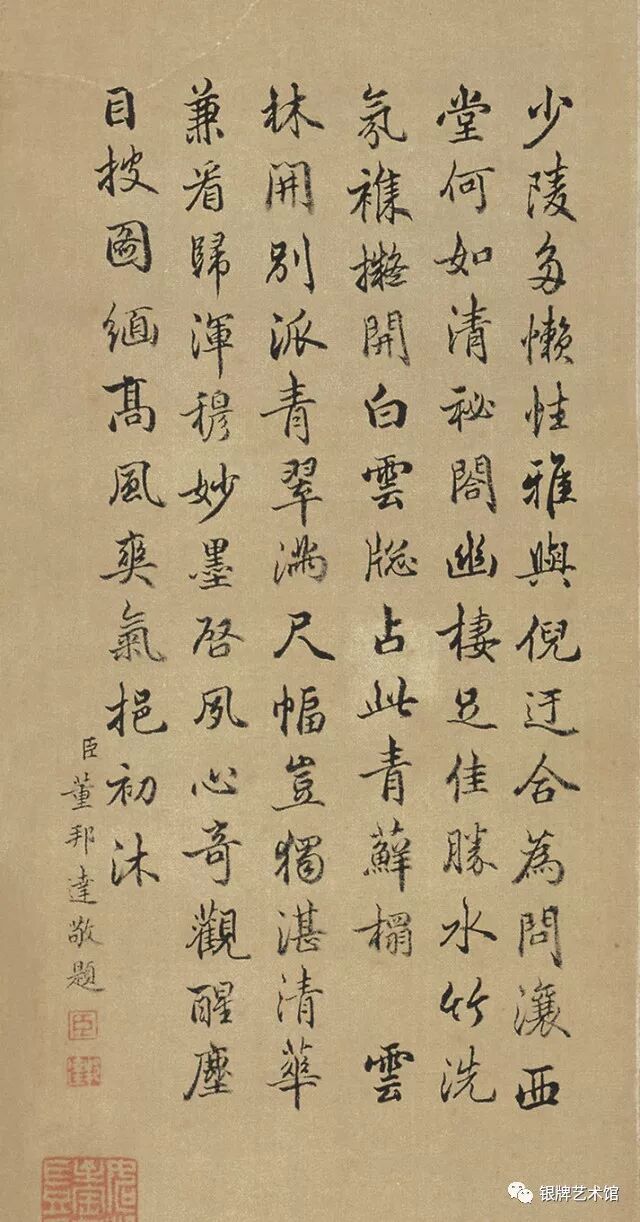 少陵夛懶性雅與倪迂合為問瀼西
堂何如清祕閣幽棲足佳勝水竹洗
氛襍擬開白雲牕占此青蘚榻 雲
林開別派青翠滿尺幅豈獨湛清華
兼看歸渾穆妙墨啓夙心奇觀醒塵
目披圖緬髙風爽氣挹初沐
臣董邦達敬題
臣
银牌艺术馆